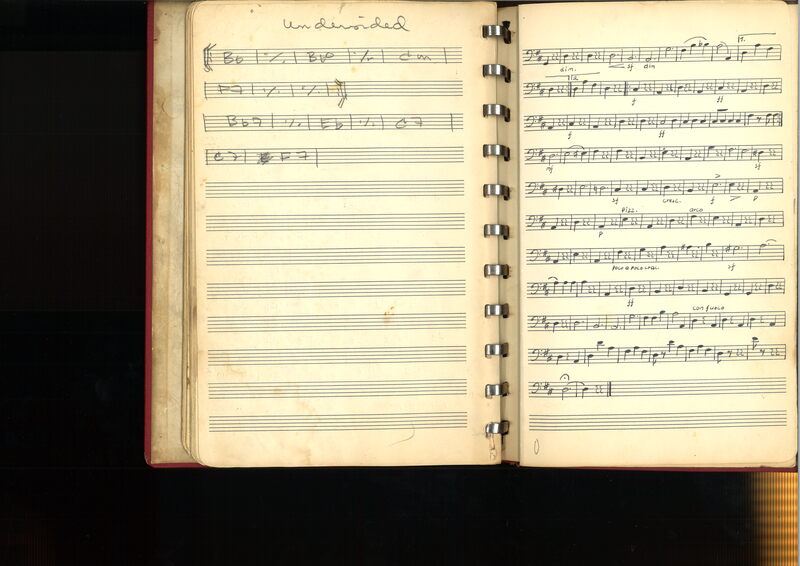 Undersided
Bb | ٪ | Bb | ٪ | Cm |
F7 | ٪ | ٪ |
Bb7 | ٪ | Eb | ٪ | C7 |
C7 | F7 |
1.
dim. sf dim
12.
f ff
f ff
mf sf
sf cresc. f > p
pizz. arco
p
poco a poco cresc. sf
ff
con fuoco